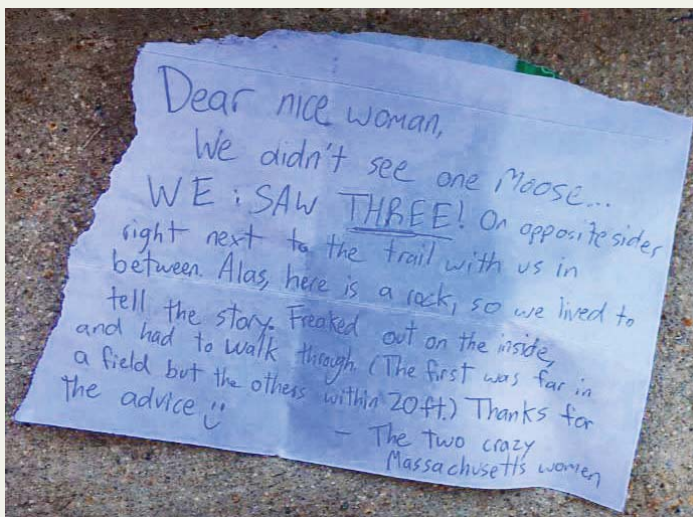 Dear nice woman,
We didn't see one Moose...
WE : SAW THREE! On opposite sides
right next to the trail with us in
between. Alas, here is a rock, so we lived to
tell the story. Freaked out on the inside,
and had to walk through. (The first was far in
a field but the others within 20ft.) Thanks for
the advice :)
- The two crazy
Massachusetts women